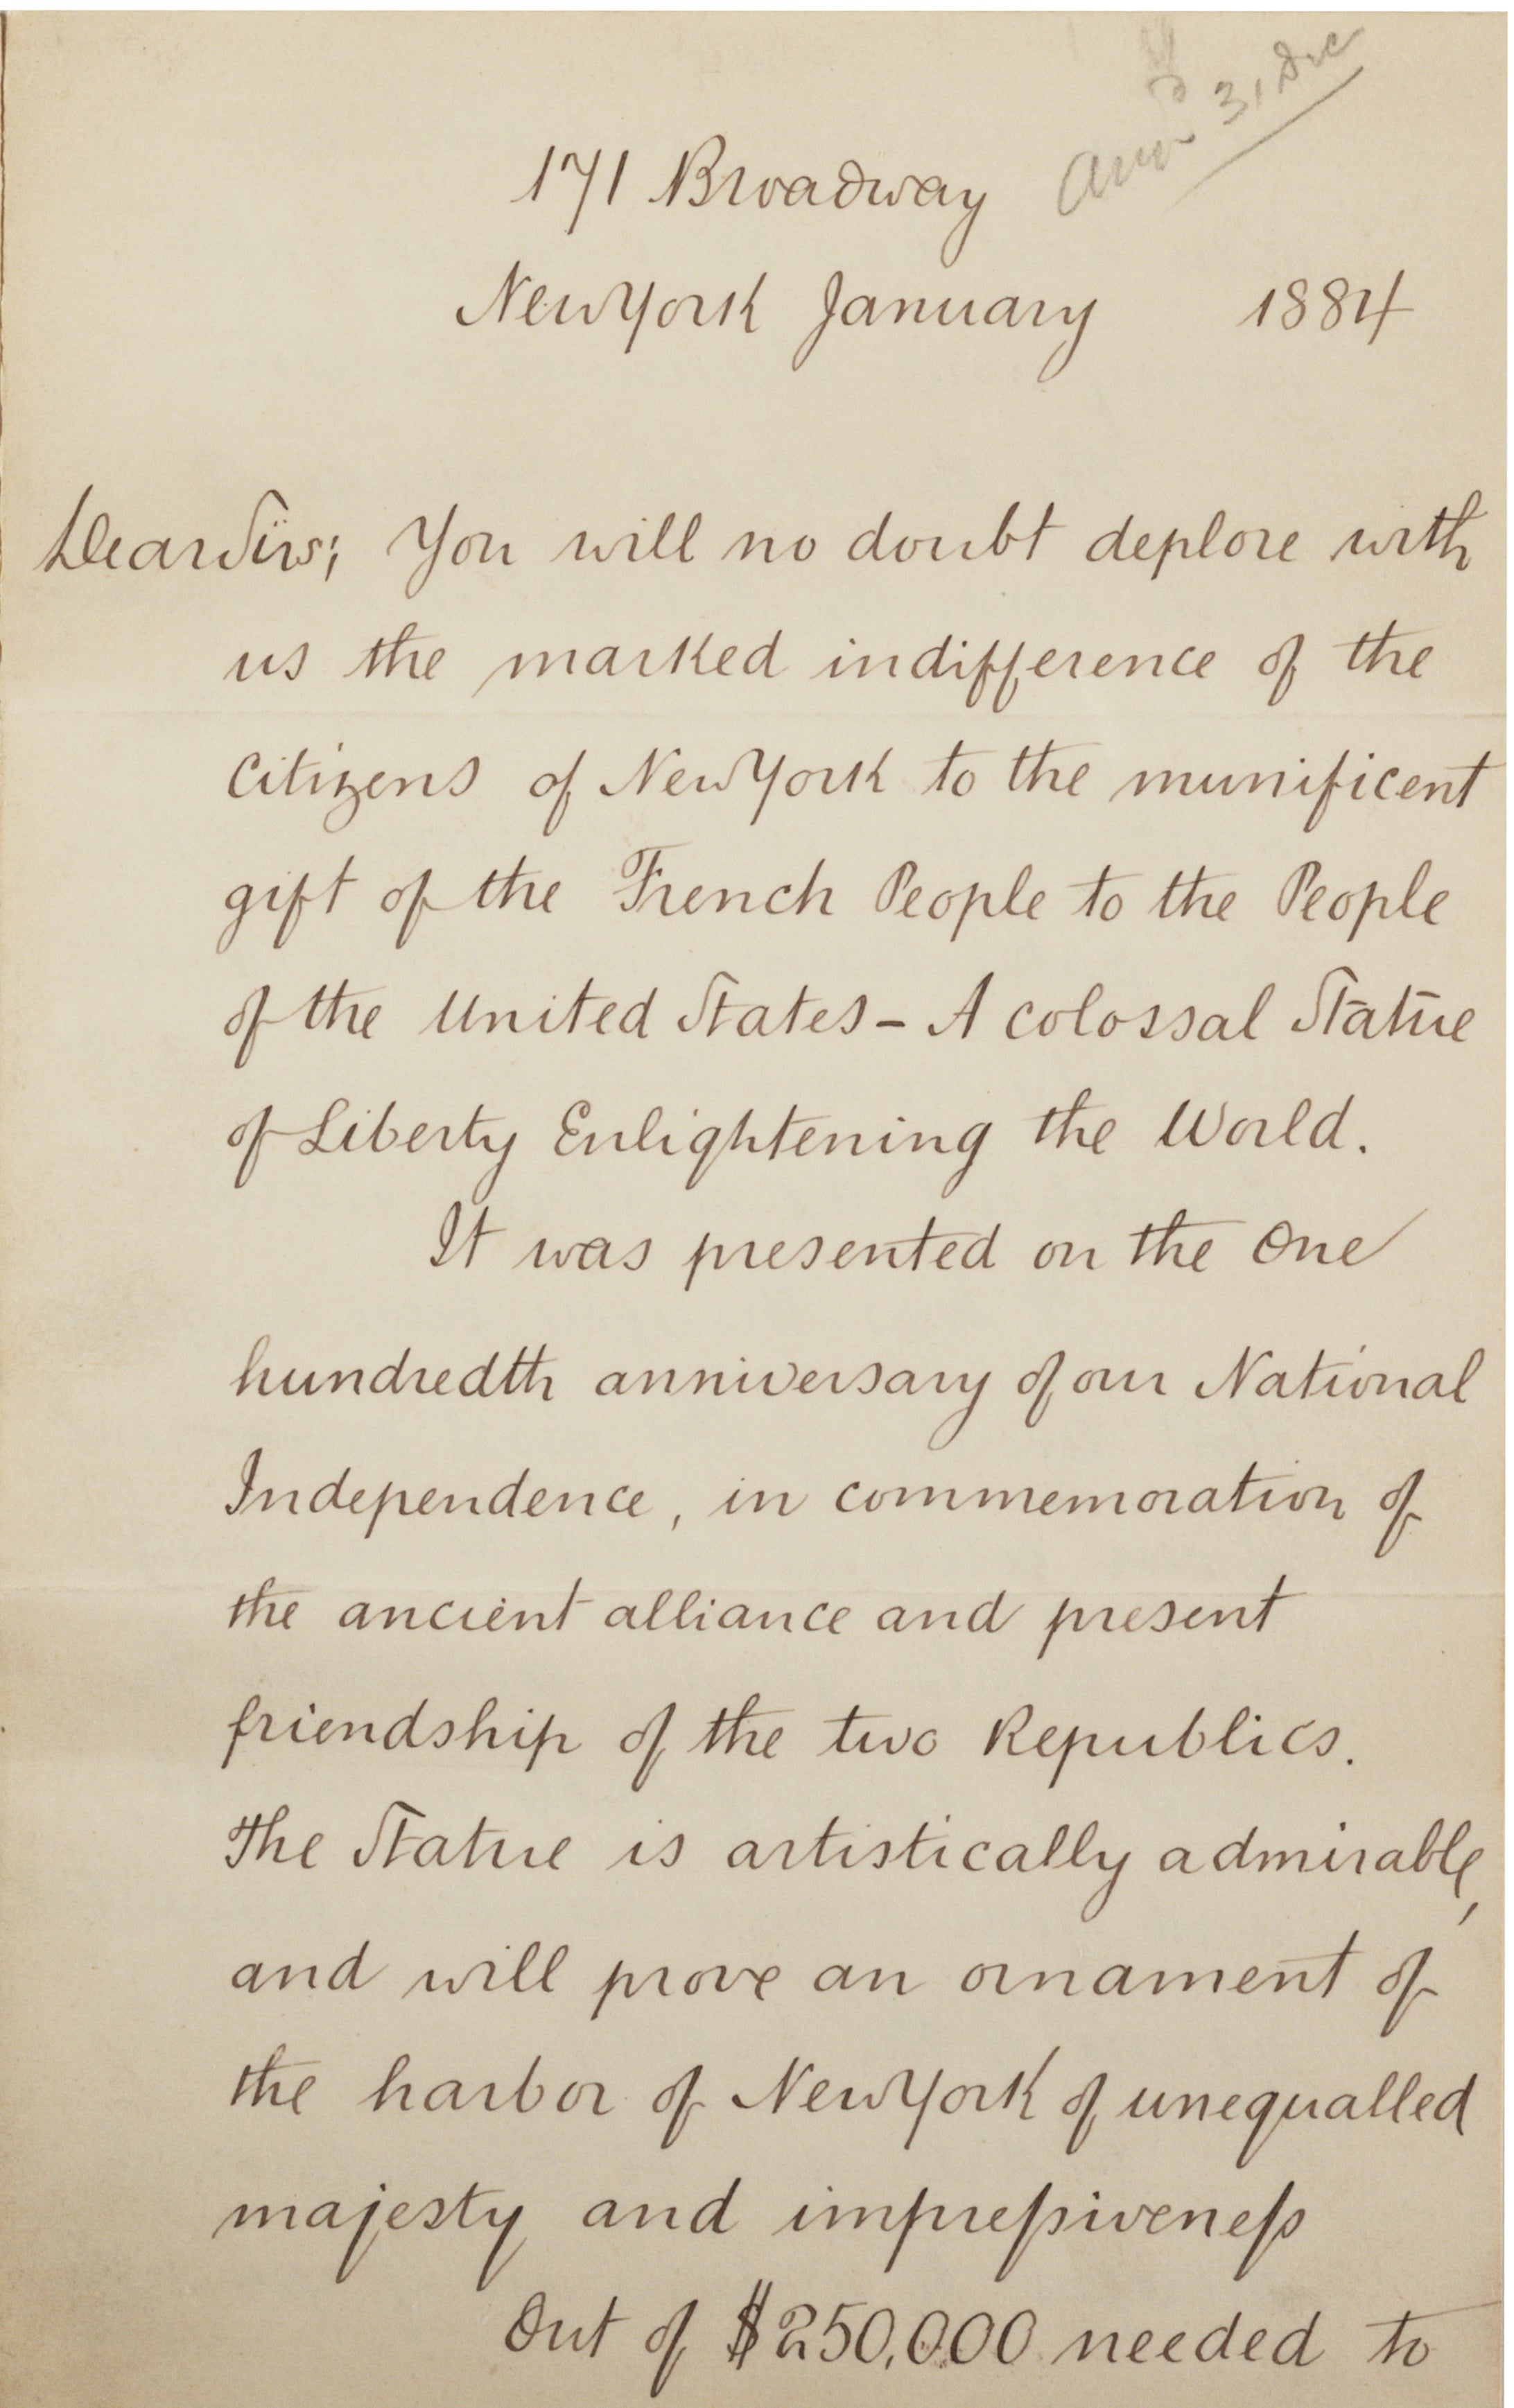 Ann 31 Dec
171 Broadway
New York January 1884
Dear Sirs; You will no doubt deplore with
us the marked indifference of the
Citizens of New York to the munificent
gift of the French People to the People
of the United States – A colossal Statue
of Liberty Enlightening the World.
It was presented on the One
hundredth anniversary of our National
Independence, in commemoration of
the ancient alliance and present
friendship of the two Republics.
The Statue is artistically admirable,
and will prove an ornament of
the harbor of New York of unequalled
majesty and impressiveness
Out of $250,000 needed to